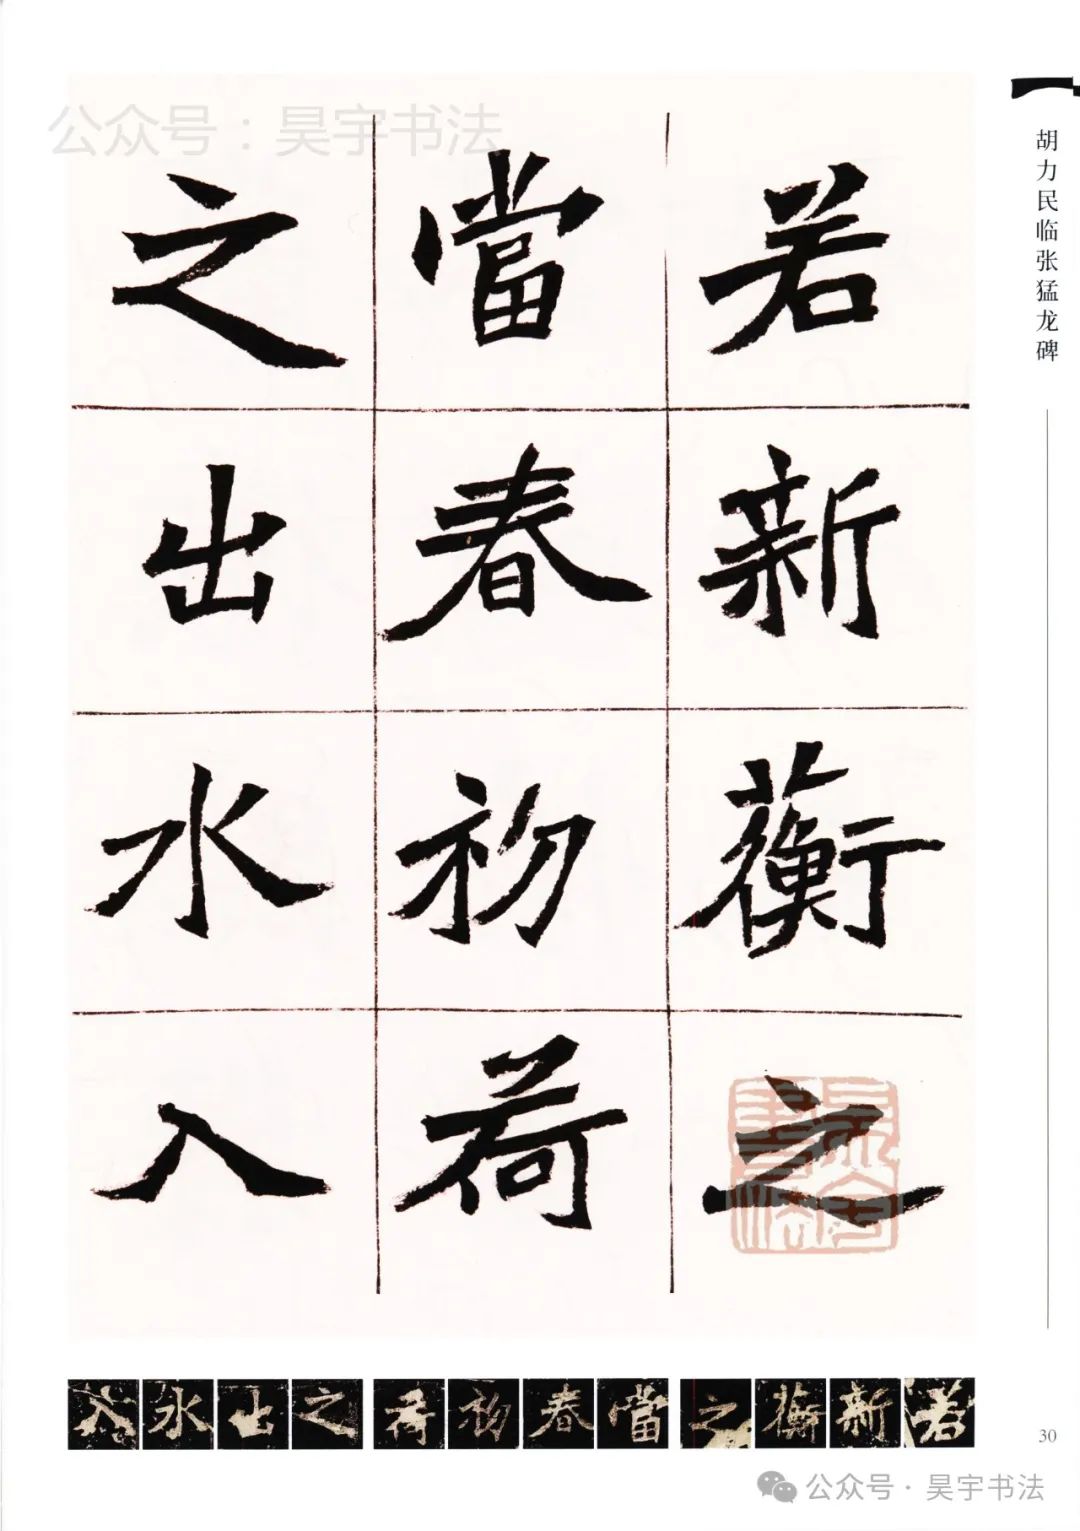 公众号：昊宇书法
胡力民临张猛龙碑
若新蘅之
當春初荷
之出水入
入水出之荷初春當之蘅新若
30
公众号·昊宇书法